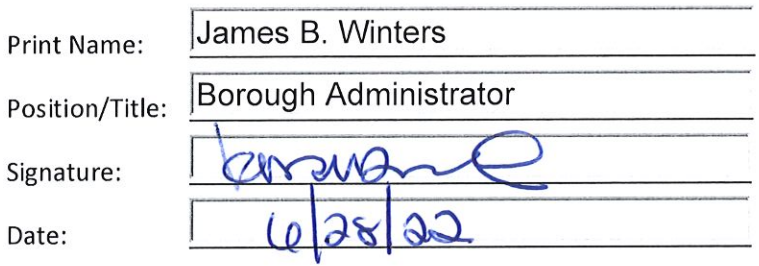 Print Name: James B. Winters
Position/Title: Borough Administrator
Signature:
Date: 6/28/22